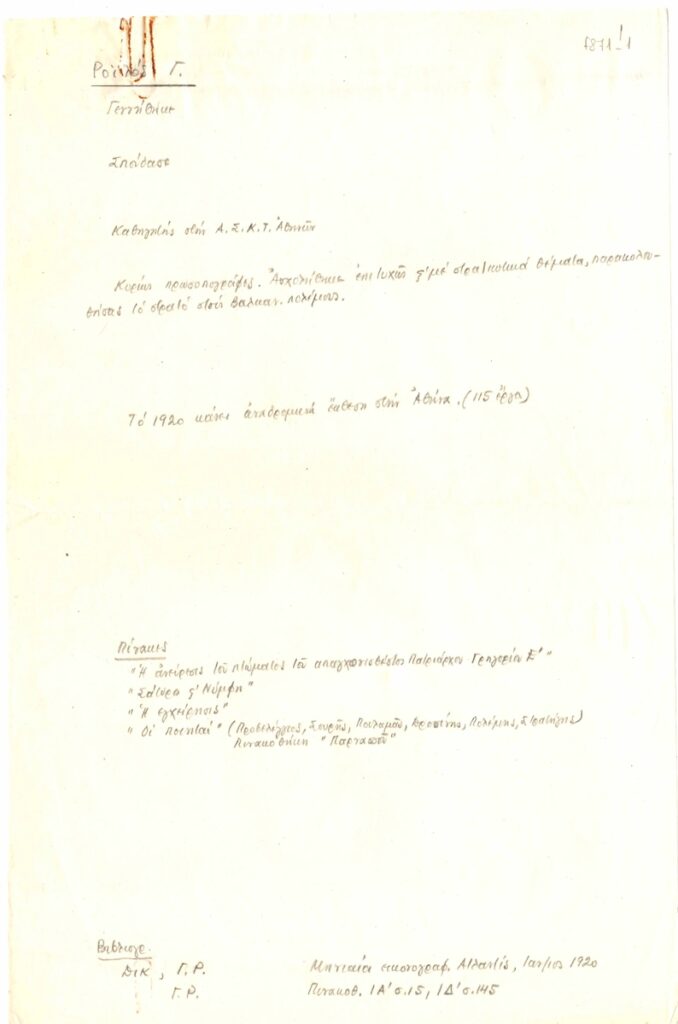 1871-1
Ροϊλός Γ.
Γεννήθηκε
Σπούδασε
Καθηγητής στήν Α.Σ.Κ.Τ. Ἀθηνῶν
Κυρίως προσωπογράφος. Ἀσχολήθηκε ἐπιτυχῶς ϛ' μέ στρατιωτικά θέματα, παρακολου-
θήσας τό στρατό στούς Βαλκαν. πολέμους.
Τό 1920 κάνει ἀναδρομική ἔκθεση στήν Ἀθήνα. (115 ἔργα)
Πίνακες
"Ἡ ἀνεύρεσις τοῦ πτώματος τοῦ ἀπαγχονισθέντος Πατριάρχου Γρηγορίου Ε'"
"Σάτυρο ϛ' Νύμφη"
"Ἡ ἐγχείρησις"
"Οἱ ποιηταί" (Προβελέγγιος, Σουρῆς, Παλαμᾶς, Δροσίνης, Πολέμης, Στρατήγης)
Πινακοθήκη "Παρνασσοῦ"
Βιβλιογρ.
ΔΙΚ, Γ.Ρ. Μηνιαία εικονογραφ. Ατλαντίς, 1920
Γ.Ρ. Πινακοθ. ΙΑ' σ.15, ΙΔ' σ.145